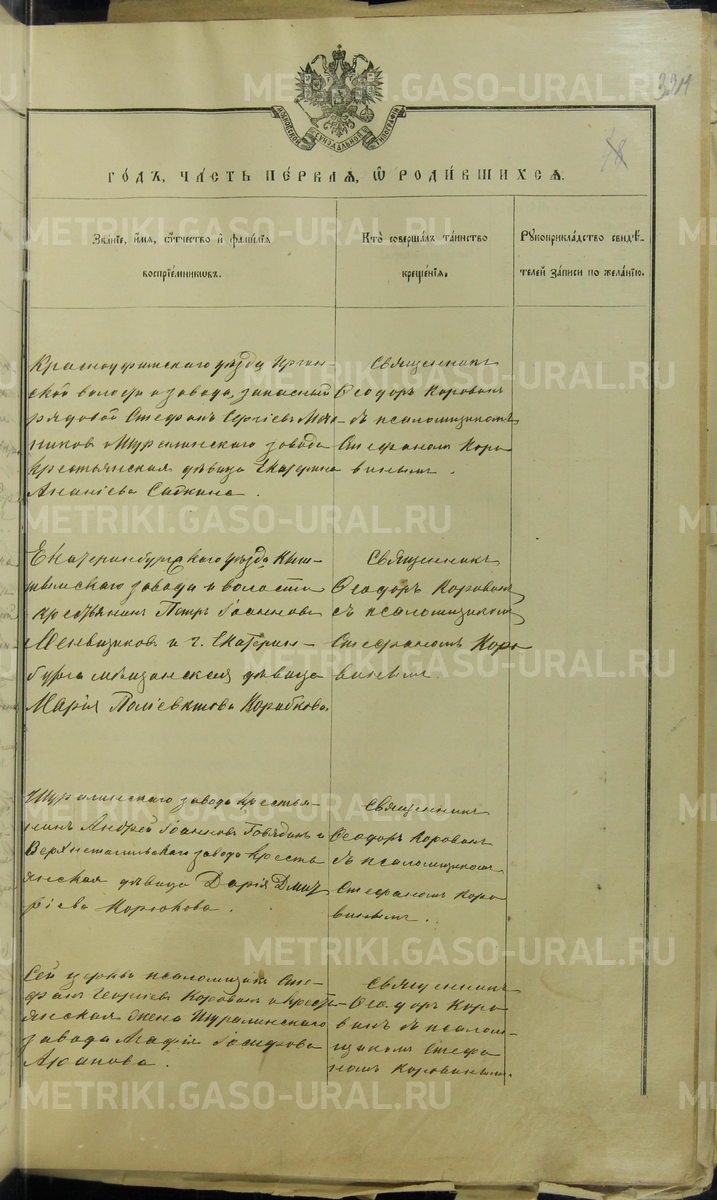 334
78
МОСКОВСКОЙ СѴНОДАЛЬНОЙ ТИПОГРАФІИ
ГО́ДЪ, ЧА́СТЬ ПЕ́РВАЯ, Ѡ҆ РОДИ́ВШИХСЯ.
Зва́нїе, и҆́мя, ѻ҆́тчество и҆ фами́лїѧ
воспрїе́мникѡвъ.
Кто̀ соверша́лъ та́инство
креще́нїѧ.
Рꙋкоприкла́дство свидѣ́-
телей за́писи по жела́нїю.
Красноуфимскаго уѣзда Ирган-
ской волости и завода, запасный
рядовой Стефанъ Сергіевъ
никовъ и Шуралинскаго завода
крестьянская дѣвица Екатерина
Ананіева Саткина.
Священникъ
Ѳеодоръ Коровинъ
съ псаломщикомъ
Стефаномъ Коро
винымъ.
Екатеринбургскаго уѣзда Кыш-
тымскаго завода и волости
крестьянинъ Петръ Іоанновъ
Меньщиковъ и г. Екатерин-
бурга мѣщанская дѣвица
Марія Поліевктова Коробкова.
Священникъ
Ѳеодоръ Коровинъ
съ псаломщикомъ
Стефаномъ Коро
винымъ.
Шуралинскаго завода крестья-
нинъ Андрей Іоанновъ и
Верхнетагильскаго завода кресть
янская дѣвица Дарія Димит
ріева Корюкова.
Священникъ
Ѳеодоръ Коровинъ
съ псаломщикомъ
Стефаномъ Коро
винымъ.
Сей церкви псаломщикъ Сте-
фанъ Георгіевъ Коровинъ и кресть
янская жена Шуралинскаго
завода Марія Іосифова
Арапова.
Священникъ
Ѳеодоръ Коро
винъ съ псалом-
щикомъ Стефа
номъ Коровинымъ.
METRIKI.GASO-URAL.RU